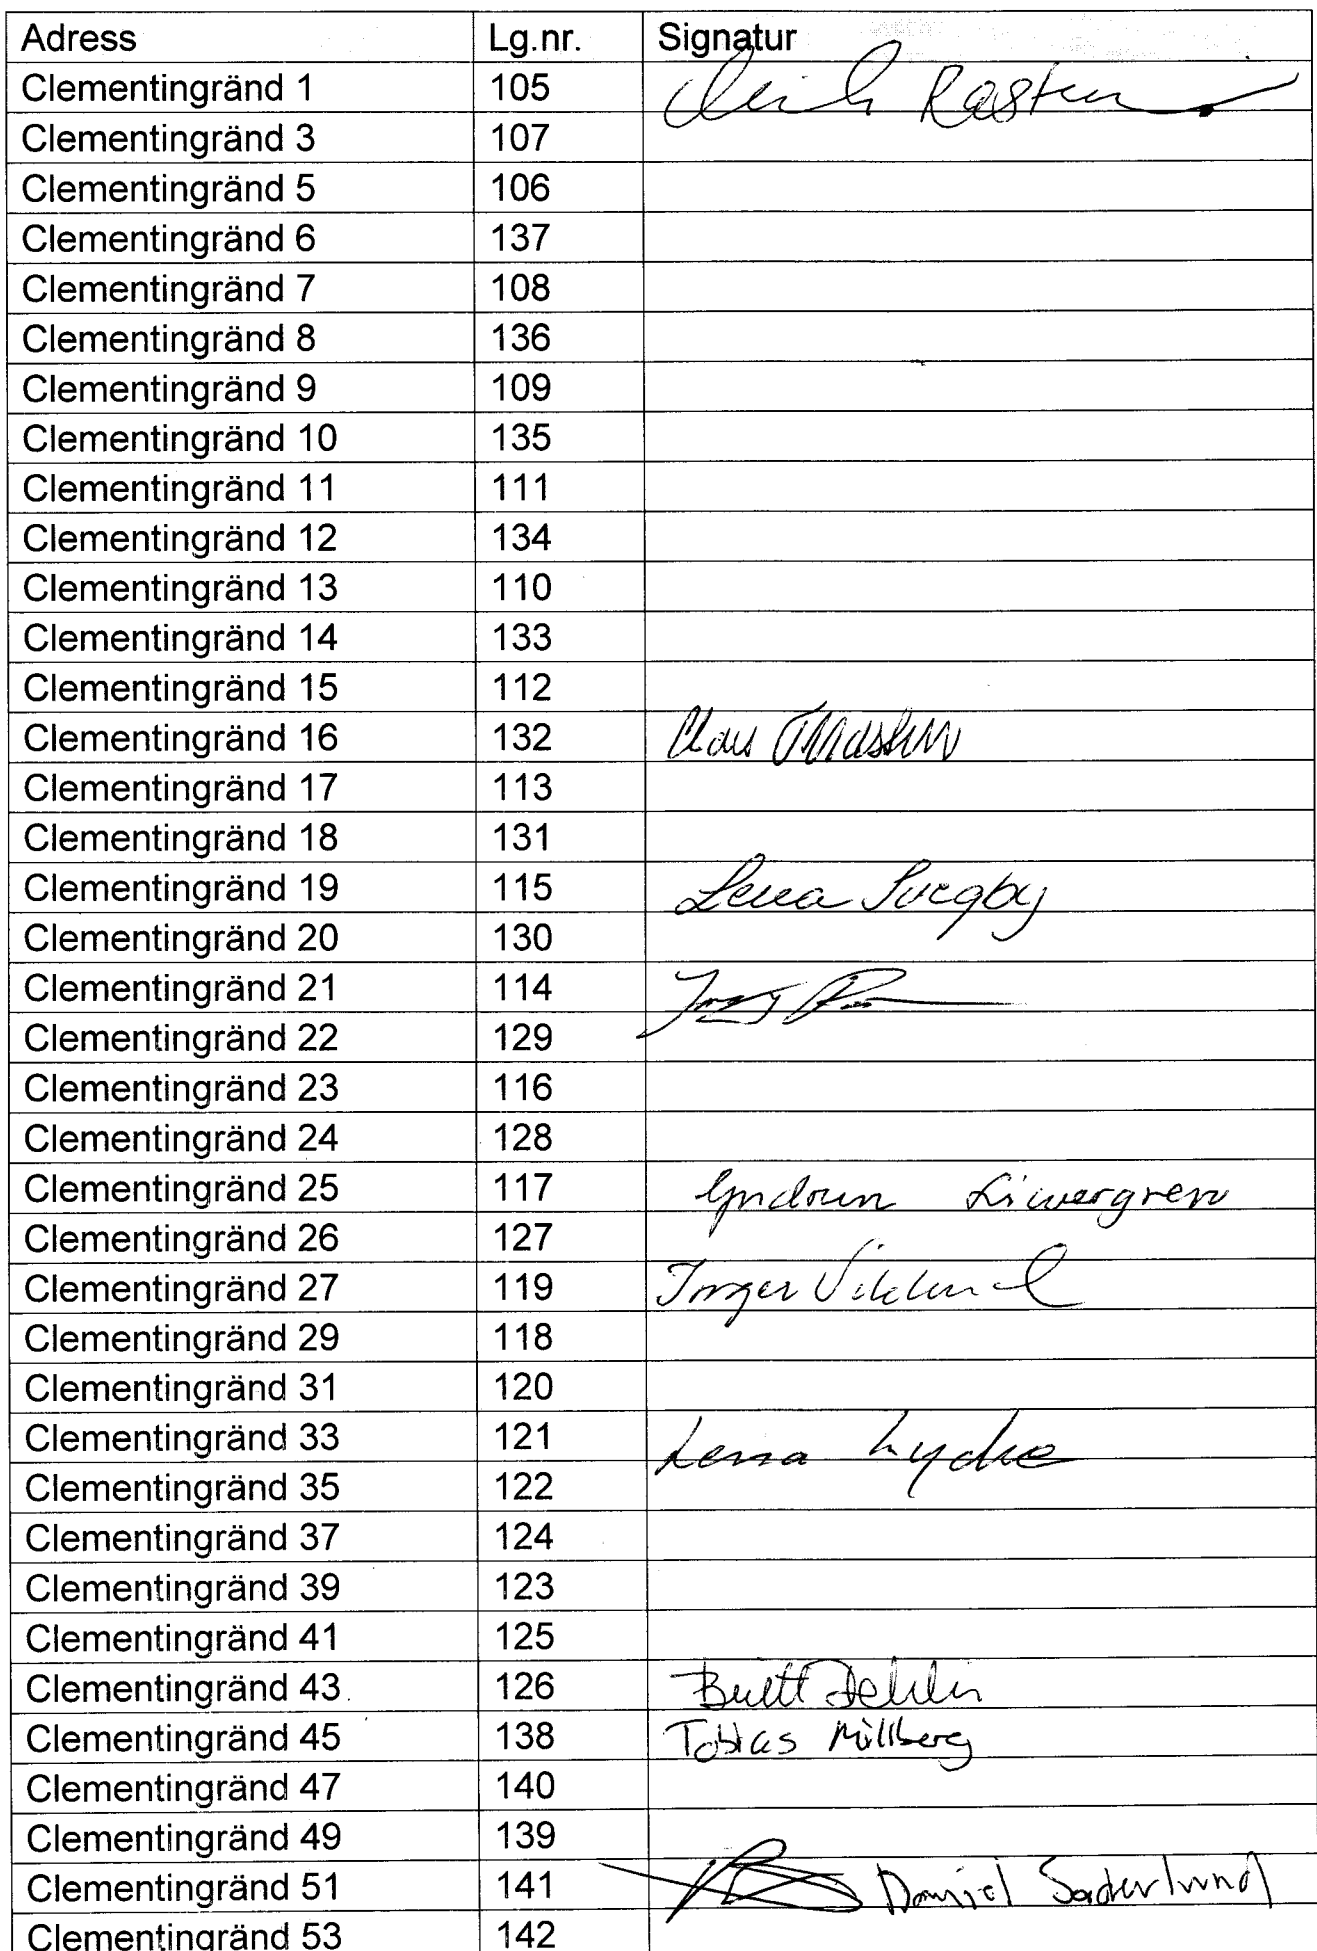 Adress Lg.nr. Signatur
Clementingränd 1 105 Rasten
Clementingränd 3 107
Clementingränd 5 106
Clementingränd 6 137
Clementingränd 7 108
Clementingränd 8 136
Clementingränd 9 109
Clementingränd 10 135
Clementingränd 11 111
Clementingränd 12 134
Clementingränd 13 110
Clementingränd 14 133
Clementingränd 15 112
Clementingränd 16 132
Clementingränd 17 113
Clementingränd 18 131
Clementingränd 19 115 Lena
Clementingränd 20 130
Clementingränd 21 114
Clementingränd 22 129
Clementingränd 23 116
Clementingränd 24 128
Clementingränd 25 117 Gudrun Liwergren
Clementingränd 26 127
Clementingränd 27 119 Inger
Clementingränd 29 118
Clementingränd 31 120
Clementingränd 33 121 Lena Lycke
Clementingränd 35 122
Clementingränd 37 124
Clementingränd 39 123
Clementingränd 41 125
Clementingränd 43 126 Britt
Clementingränd 45 138 Tobias Millberg
Clementingränd 47 140
Clementingränd 49 139
Clementingränd 51 141 Daniel Söderlund
Clementingränd 53 142